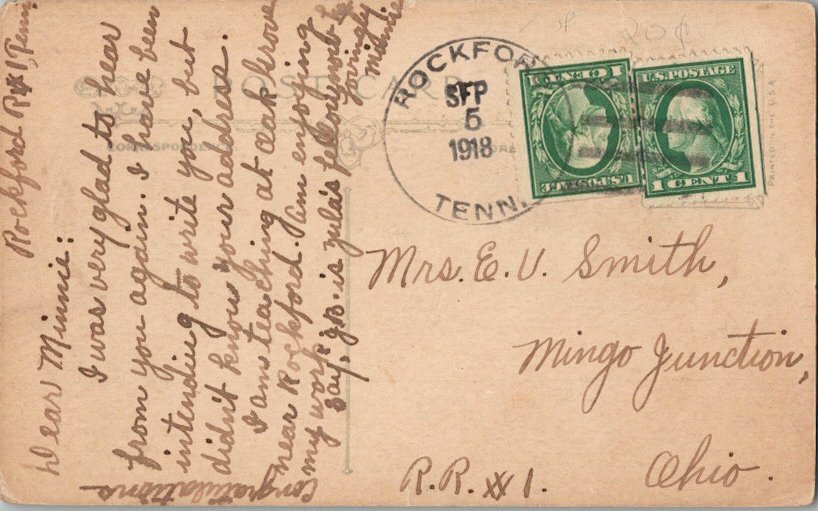 Rockford R#1, Tenn
Dear Minnie:
I was very glad to hear
from you again. I have been
intending to write you, but
didn't know your address.
I am teaching at Oak Grove
near Rockford. Am enjoying
my work.
Say, J.B. is Zula's fellow
Lovingly
Congratulations
POST CARD
CORRESPONDENCE
ROCKFORD
SEP
5
1918
TENN.
U.S. POSTAGE
1 CENT 1
U.S. POSTAGE
1 CENT 1
PRINTED IN THE U.S.A.
Mrs. E. V. Smith,
Mingo Junction,
R.R. #1. Ohio.